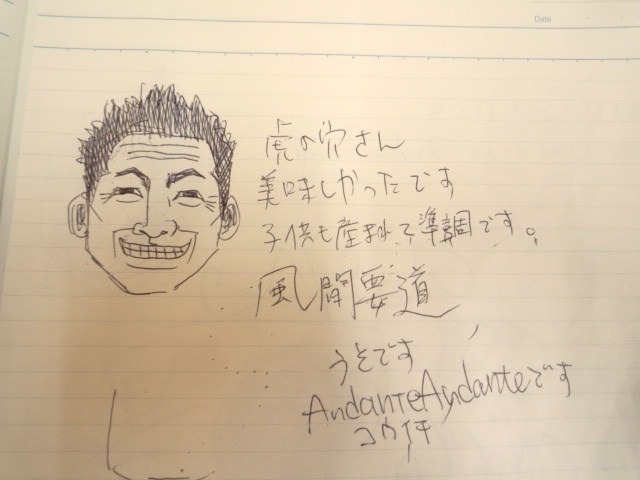 Date
虎の穴さん
美味しかったです
子供も産まれて準調です。
風間要道
うそです
AndanteAndanteです
コウイチ